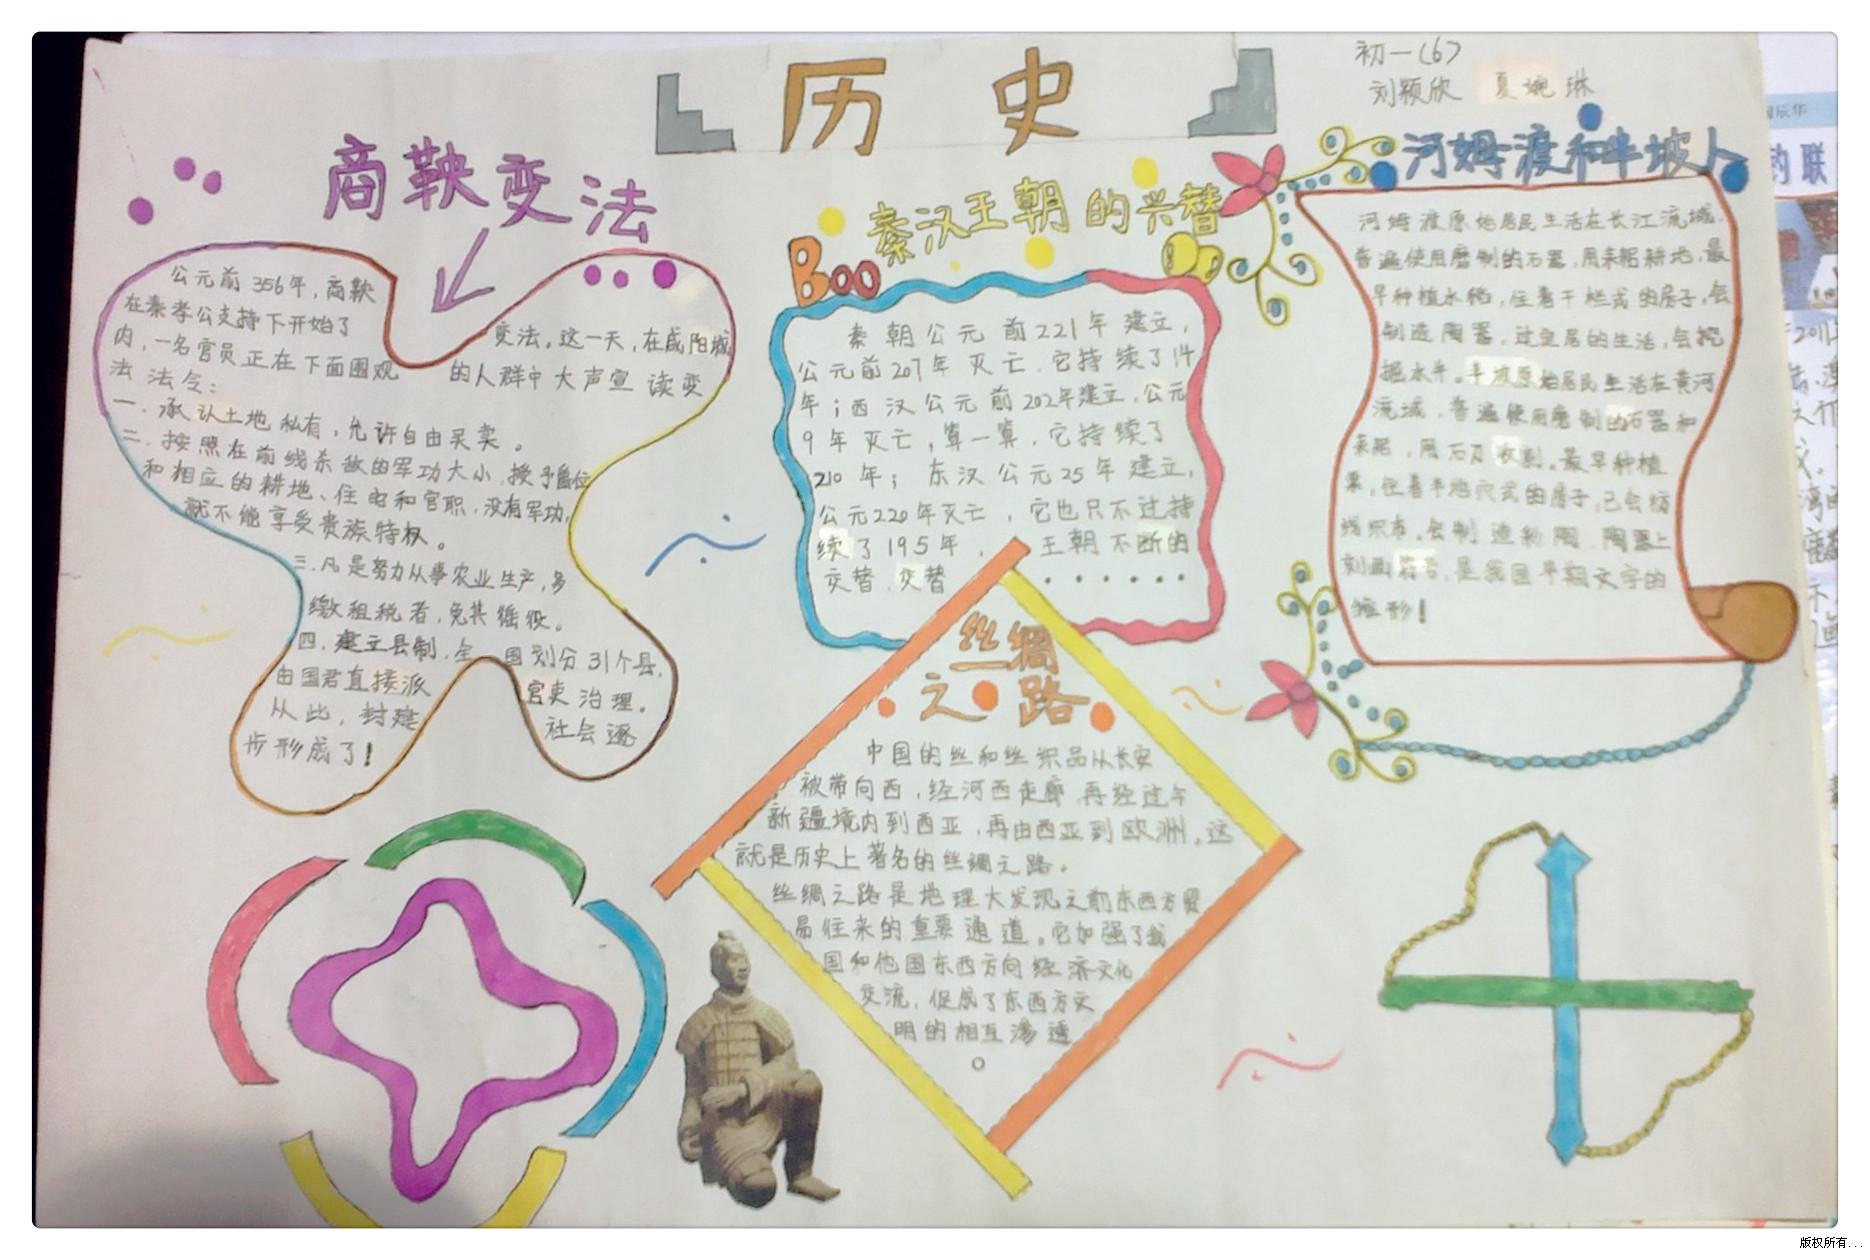 历史
初一(6)
刘颖欣 夏婉琳
商鞅变法
公元前356年,商鞅
在秦孝公支持下开始了
变法。这一天,在咸阳城
内,一名官员正在下面围观
的人群中大声宣读变
法法令:
一.承认土地私有,允许自由买卖。
二.按照在前线杀敌的军功大小,授予爵位
和相应的耕地、住宅和官职,没有军功,
就不能享受贵族特权。
三.凡是努力从事农业生产,多
缴租税者,免其徭役。
四.建立县制.全国划分31个县,
由国君直接派官吏治理。
从此,封建社会逐
步形成了!
秦汉王朝的兴替
Boo
秦朝公元前221年建立,
公元前207年灭亡.它持续了14
年;西汉公元前202年建立,公元
9年灭亡,算一算,它持续了
210年;东汉公元25年建立,
公元220年灭亡,它也只不过持
续了195年,王朝不断的
交替.交替······
河姆渡和半坡人
河姆渡原始居民生活在长江流域.
普遍使用磨制的石器,用耒耜耕地,最
早种植水稻,住着干栏式的房子,会
制造陶器,过定居的生活,会挖
掘水井。半坡原始居民生活在黄河
流域.普遍使用磨制的石器和
耒耜,用石刀收割。最早种植
粟,住着半地穴式的房子,已会纺
线织布。会制造彩陶.陶器上
刻画符号,是我国早期文字的
雏形!
丝绸
之路
中国的丝和丝织品从长安
被带向西,经河西走廊.再经过今
新疆境内到西亚,再由西亚到欧洲,这
就是历史上著名的丝绸之路。
丝绸之路是地理大发现之前东西方贸
易往来的重要通道。它加强了我
国和他国东西方向经济文化
交流,促成了东西方文
明的相互渗透
。
版权所有...